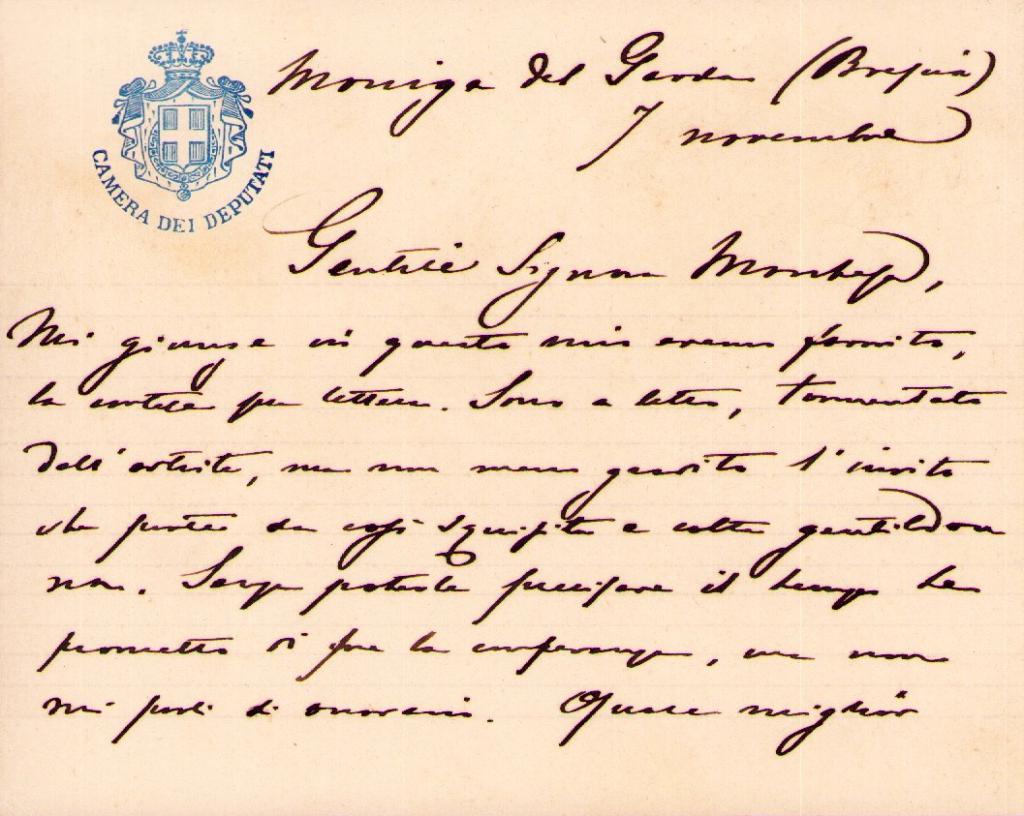 CAMERA DEI DEPUTATI
Moniga del Garda (Brescia)
7 novembre
Gentile Signora
Mi giunge in questo mio eremo fiorito,
la cortese sua lettera. Sono a letto, tormentato
dall'artrite, ma non meno gradito l'invito
che parte da così squisita e colta gentildon
na. Senza poterle precisare il tempo le
prometto di fare la conferenza, ma non
mi parli di onorario. Quale miglior